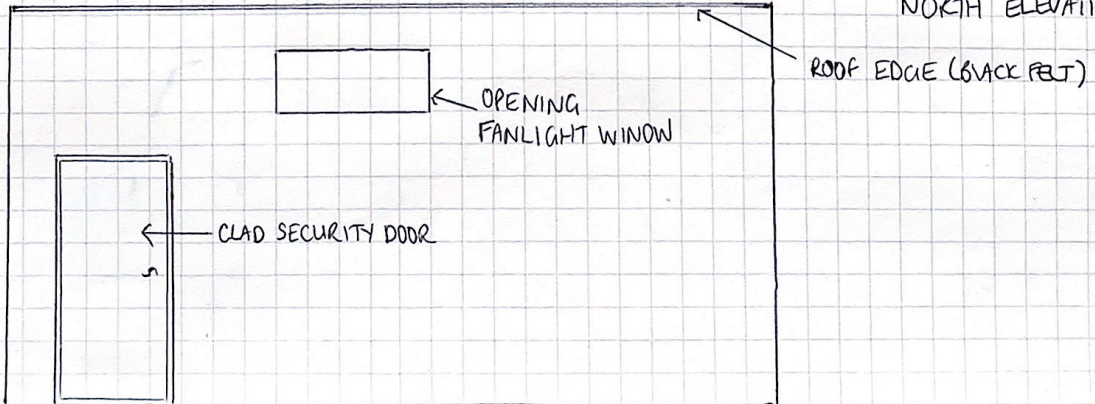 NORTH ELEVATI
ROOF EDGE (BLACK FELT)
OPENING
FANLIGHT WINOW
CLAD SECURITY DOOR